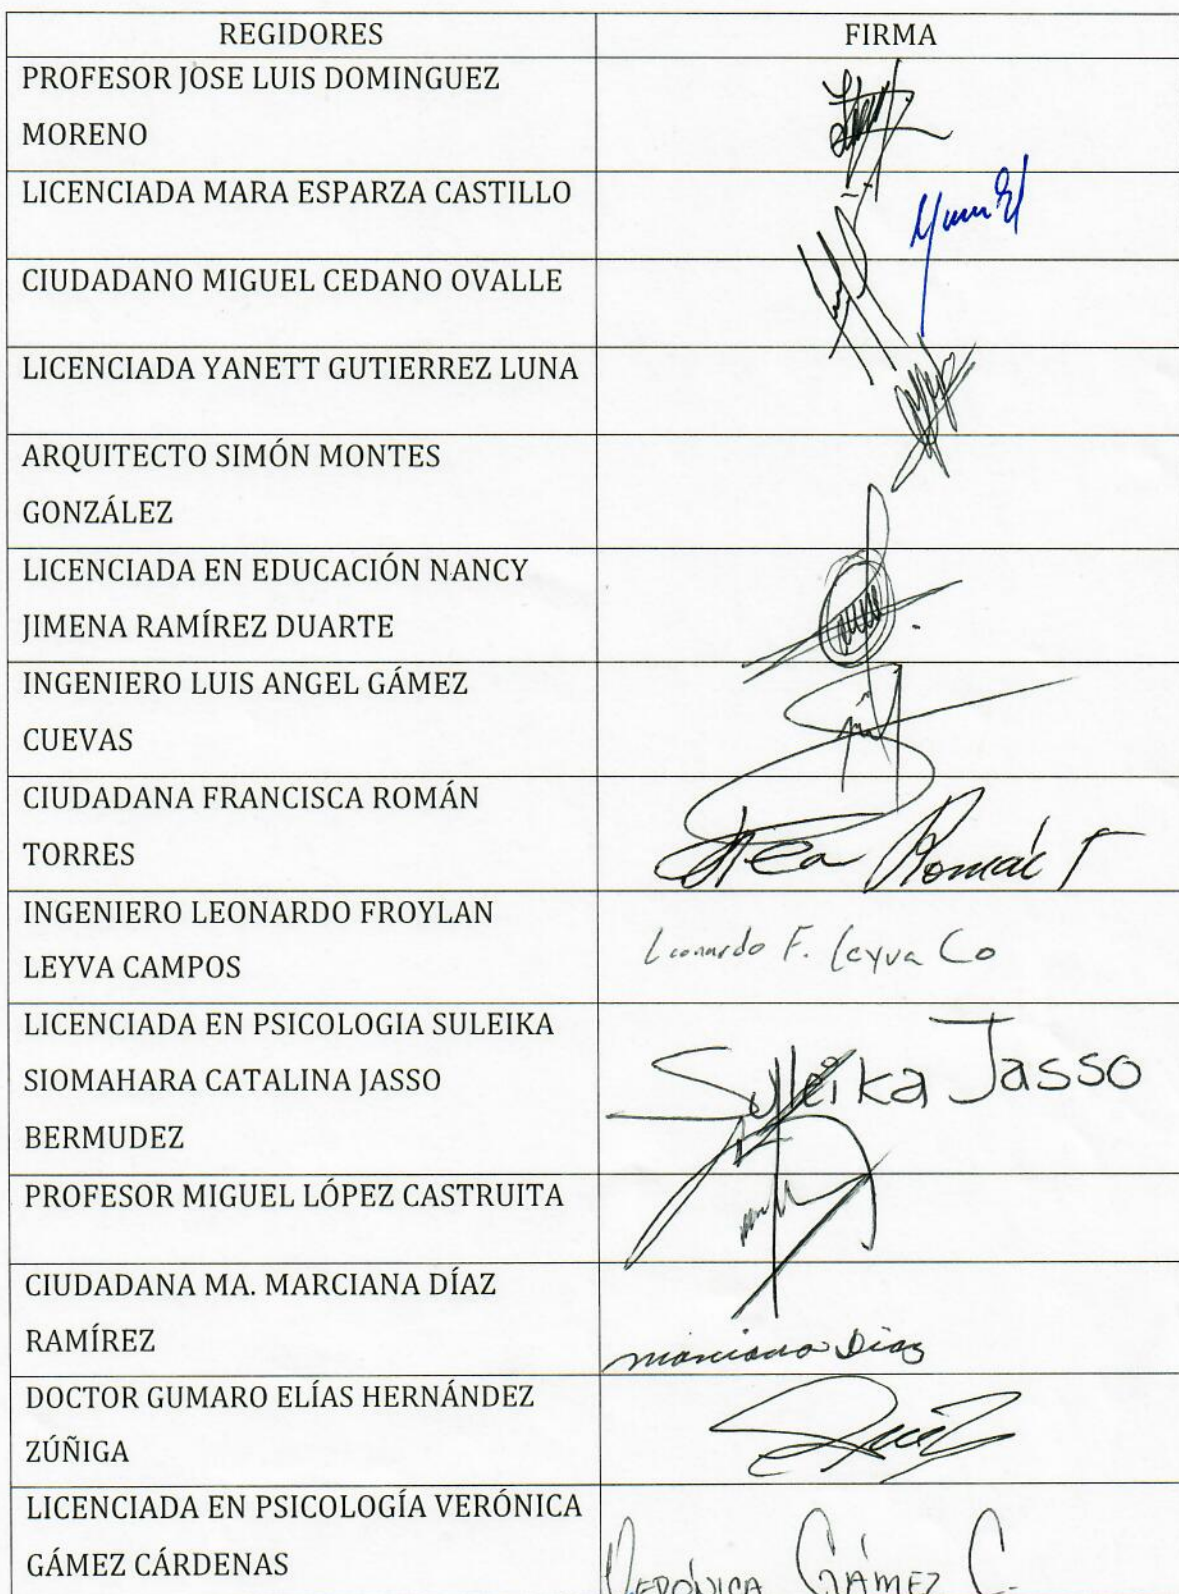 REGIDORES FIRMA
PROFESOR JOSE LUIS DOMINGUEZ
MORENO
LICENCIADA MARA ESPARZA CASTILLO
CIUDADANO MIGUEL CEDANO OVALLE
LICENCIADA YANETT GUTIERREZ LUNA
ARQUITECTO SIMÓN MONTES
GONZÁLEZ
LICENCIADA EN EDUCACIÓN NANCY
JIMENA RAMÍREZ DUARTE
INGENIERO LUIS ANGEL GÁMEZ
CUEVAS
CIUDADANA FRANCISCA ROMÁN
TORRES
Román T
INGENIERO LEONARDO FROYLAN
Leonardo F. Leyva Co
LEYVA CAMPOS
LICENCIADA EN PSICOLOGIA SULEIKA
Suleika Jasso
SIOMAHARA CATALINA JASSO
BERMUDEZ
PROFESOR MIGUEL LÓPEZ CASTRUITA
CIUDADANA MA. MARCIANA DÍAZ
RAMÍREZ
marciana Diaz
DOCTOR GUMARO ELÍAS HERNÁNDEZ
ZÚÑIGA
LICENCIADA EN PSICOLOGÍA VERÓNICA
GÁMEZ CÁRDENAS
VERÓNICA GÁMEZ C.